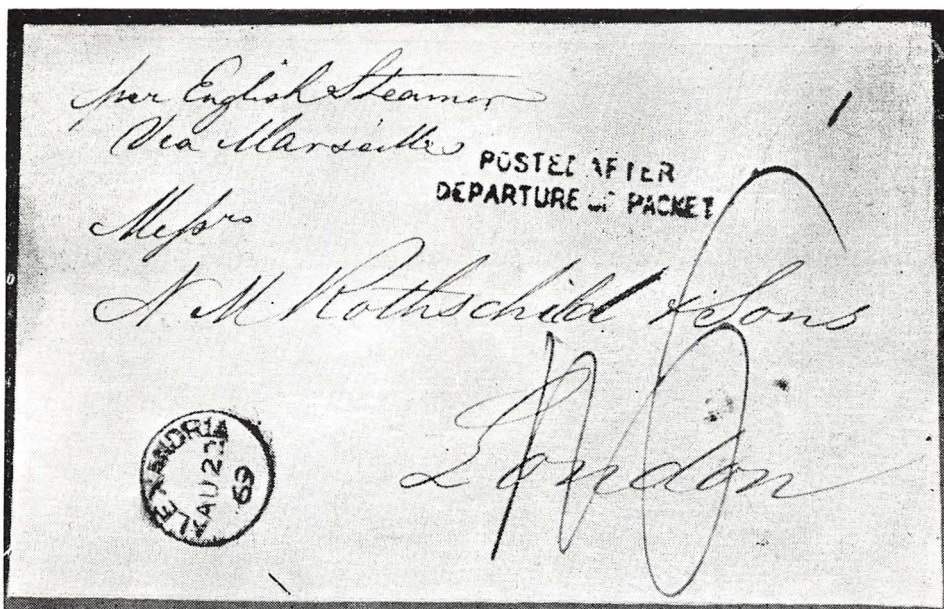 per English Steamer
Via Marseille
POSTED AFTER
DEPARTURE OF PACKET
Messrs
N. M. Rothschild & Sons
London
ALEXANDRIA
AU 2
69